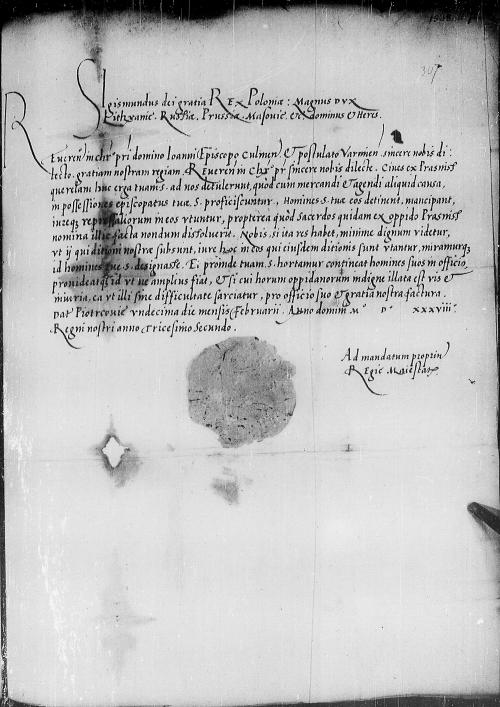 307
Sigismundus dei gratia REX Poloniæ: Magnus DVX
Lithvanie. Russiæ. Prussiæ. Masovie. etc dominus et Heres.
Reueren in chro pri domino Ioanni Episcopo Culmen, et postulato Varmien. sincere nobis di:
lecto. gratiam nostram regiam. Reueren in Chro pr sincere nobis dilecte. Ciues ex Prasniss
querelam huc erga tuam S. ad nos detulerunt, quod cum mercandi et agendi aliquid causa,
in possessiones episcopatus tuæ S. proficiscuntur, Homines S. tuæ eos detinent, mancipant,
iureqz repressaliorum in eos vtuntur, propterea quod Sacerdos quidam ex oppido Prasniss
nomina illic facta nondum dissoluerit. Nobis, si ita res habet, minime dignum videtur,
vt ij qui ditioni nostræ subsunt, iure hoc in eos qui eiusdem ditionis sunt vtantur, miramurqz
id homines tuæ S. designasse. Et proinde tuam S. hortamur contineat homines suos in officio,
prouideatqz id vt ne amplius fiat, et si cui horum oppidanorum indigne illata est vis et
iniuria, ea vt illi sine difficultate sarciatur, pro officio suo et gratia nostra factura.
Dat Piotrcouie vndecima die mensis Februarii Anno domini Mº Dº xxxviiiº.
Regni nostri anno Tricesimo Secundo.
Ad mandatum propriu
Regie Maiestatis